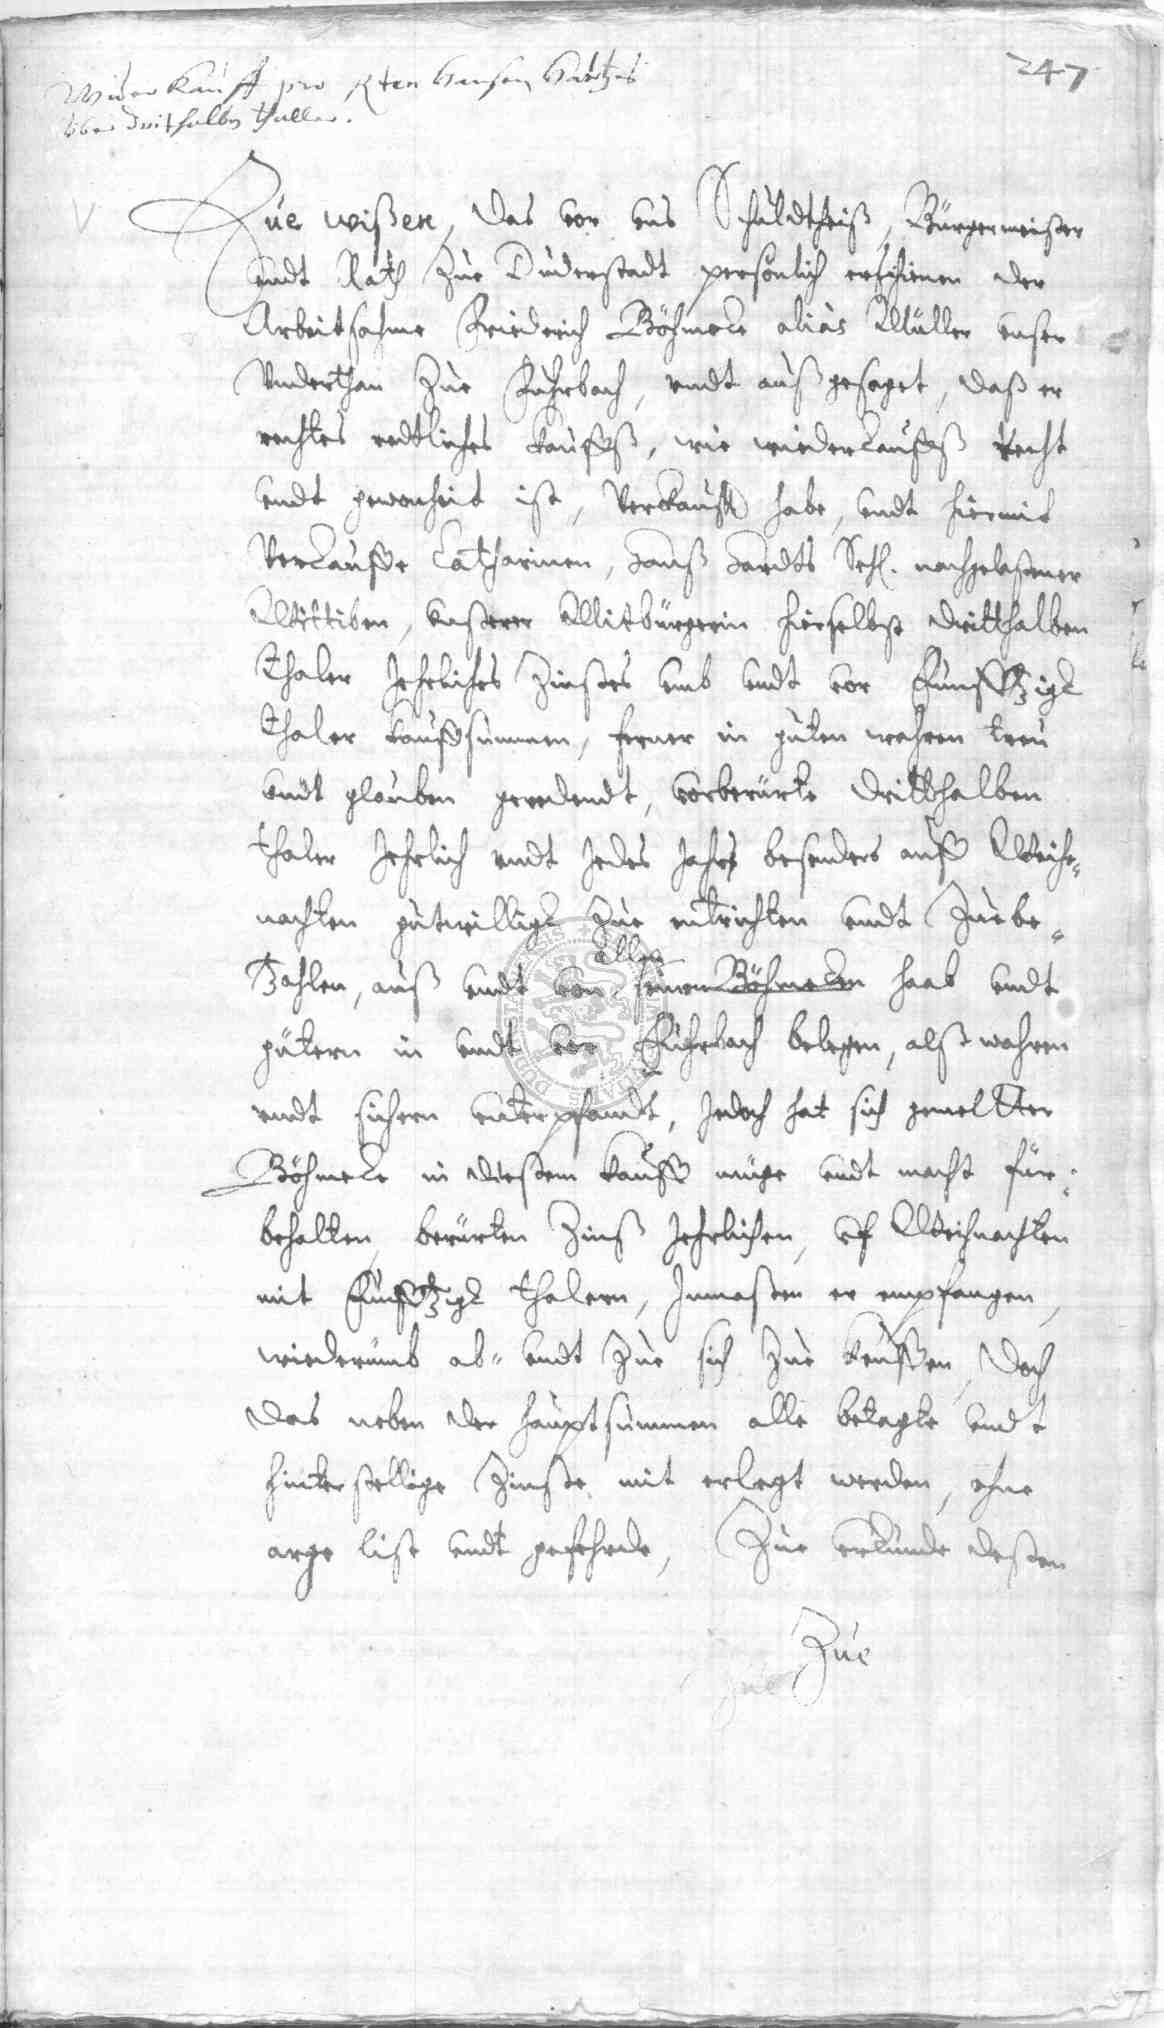 247
Wider Kauff pro
über dritthalben thaller.
Zue wißen, das vor uns Schuldtheiß, Bürgermeister
undt Rath Zue Duderstadt persönlich erschienen der
Arbeitsahme Friederich Böhmeke aliàs Müller unser
Underthan Zue Fuhrbach, undt außgesaget, daß er
rechtes redtliches kauffß, wie wiederkauffß Recht
undt gewonheit ist, Verkaufft habe, undt hiermit
Verkauffe Catharinen, Hanß Hardts Sehl. nachgelaßener
Wittiben, unserer Mitbürgerin hierselbst dritthalben
thaler Jehrliches Zinßes umb undt vor Funfftzigk
thaler kauffsummen, ferner in guten wahren treu
undt glauben geredendt, vorberürte dritthalben
thaler Jehrlich undt Jedes Jahrs besonders auff Weihe-
nachten gutwilligk Zue entrichten undt Zuebe-
allen
Zahlen, auß undt von seinen Böhmeken haab undt
gütern in undt vor Fuhrbach belegen, alß wahren
undt sichern unterpfandt, Jedoch hat sich gemelter
Böhmeke in diesem kauff müge undt macht für-
behalten, berürten Zinß Jehrlichen, uf Weihnachten
mit Funfftzigk thalern, Inmaßen er empfangen,
wiederumb ab- undt Zue sich Zue keuffen, doch
das neben der hauptsummen alle betagte undt
hinterstellige Zinße mit erlegt werden, ohne
arge list undt gefehrde, Zue urkunde deßen
Zue